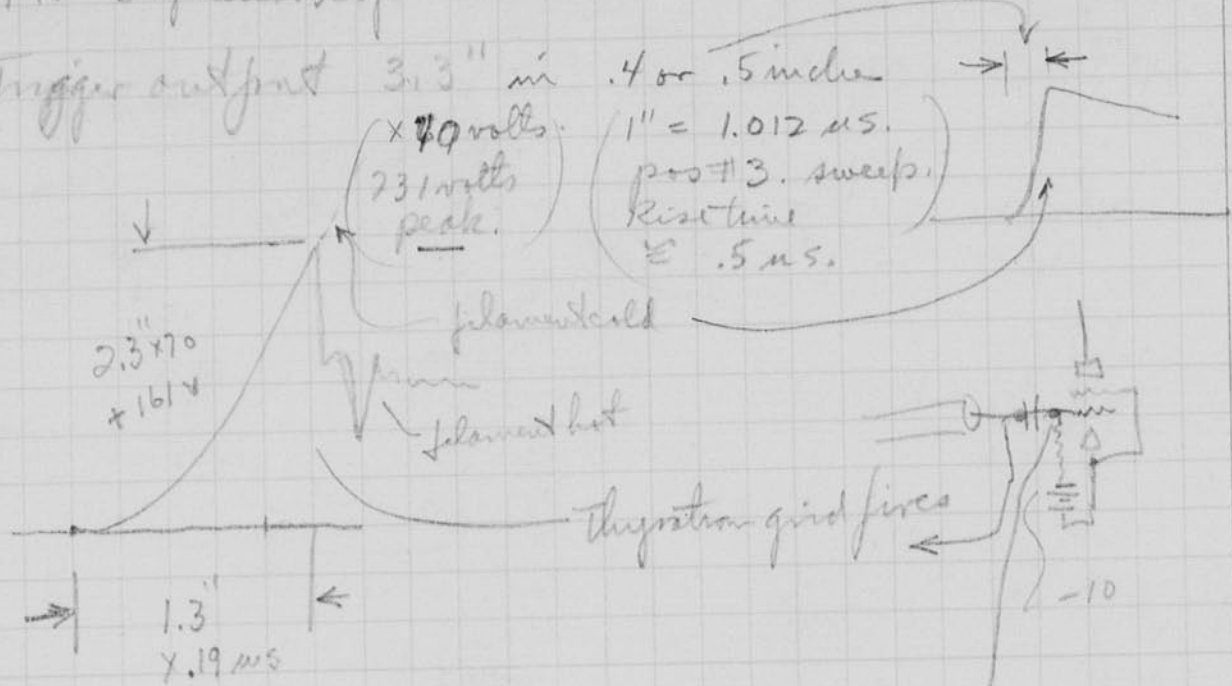 Trigger output 3.3" in .4 or .5 inche
x 70 volts.
231 volts
peak.
1" = 1.012 us.
pos #3. sweep.
Risetime
.5 us.
filament cold
2.3" x 70
+ 161 v
filament hot
Thyratron grid fires
-10
1.3"
x .19 us